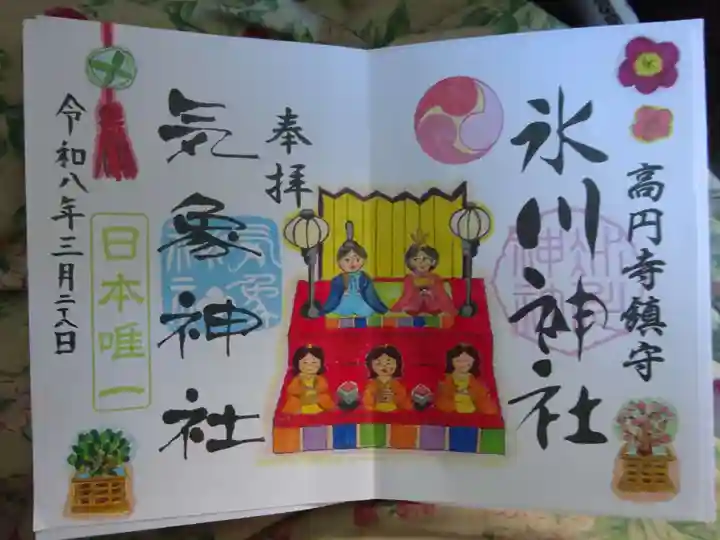 高円寺鎮守
氷川神社
奉拝
気象神社
日本唯一
令和八年三月二八日